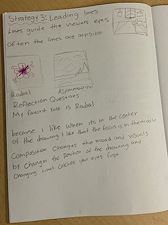 Strategy 3: Leading lines
lines guide the viewers eyes
Often the lines are
Radial
Reflection Questions
My favorite rule is Radial
because I like when its in the center
of the drawing I like that the focus is in the middle
Composition Changes the mood and visually
by Changing the position of the drawing and
Changing what catches your eyes first